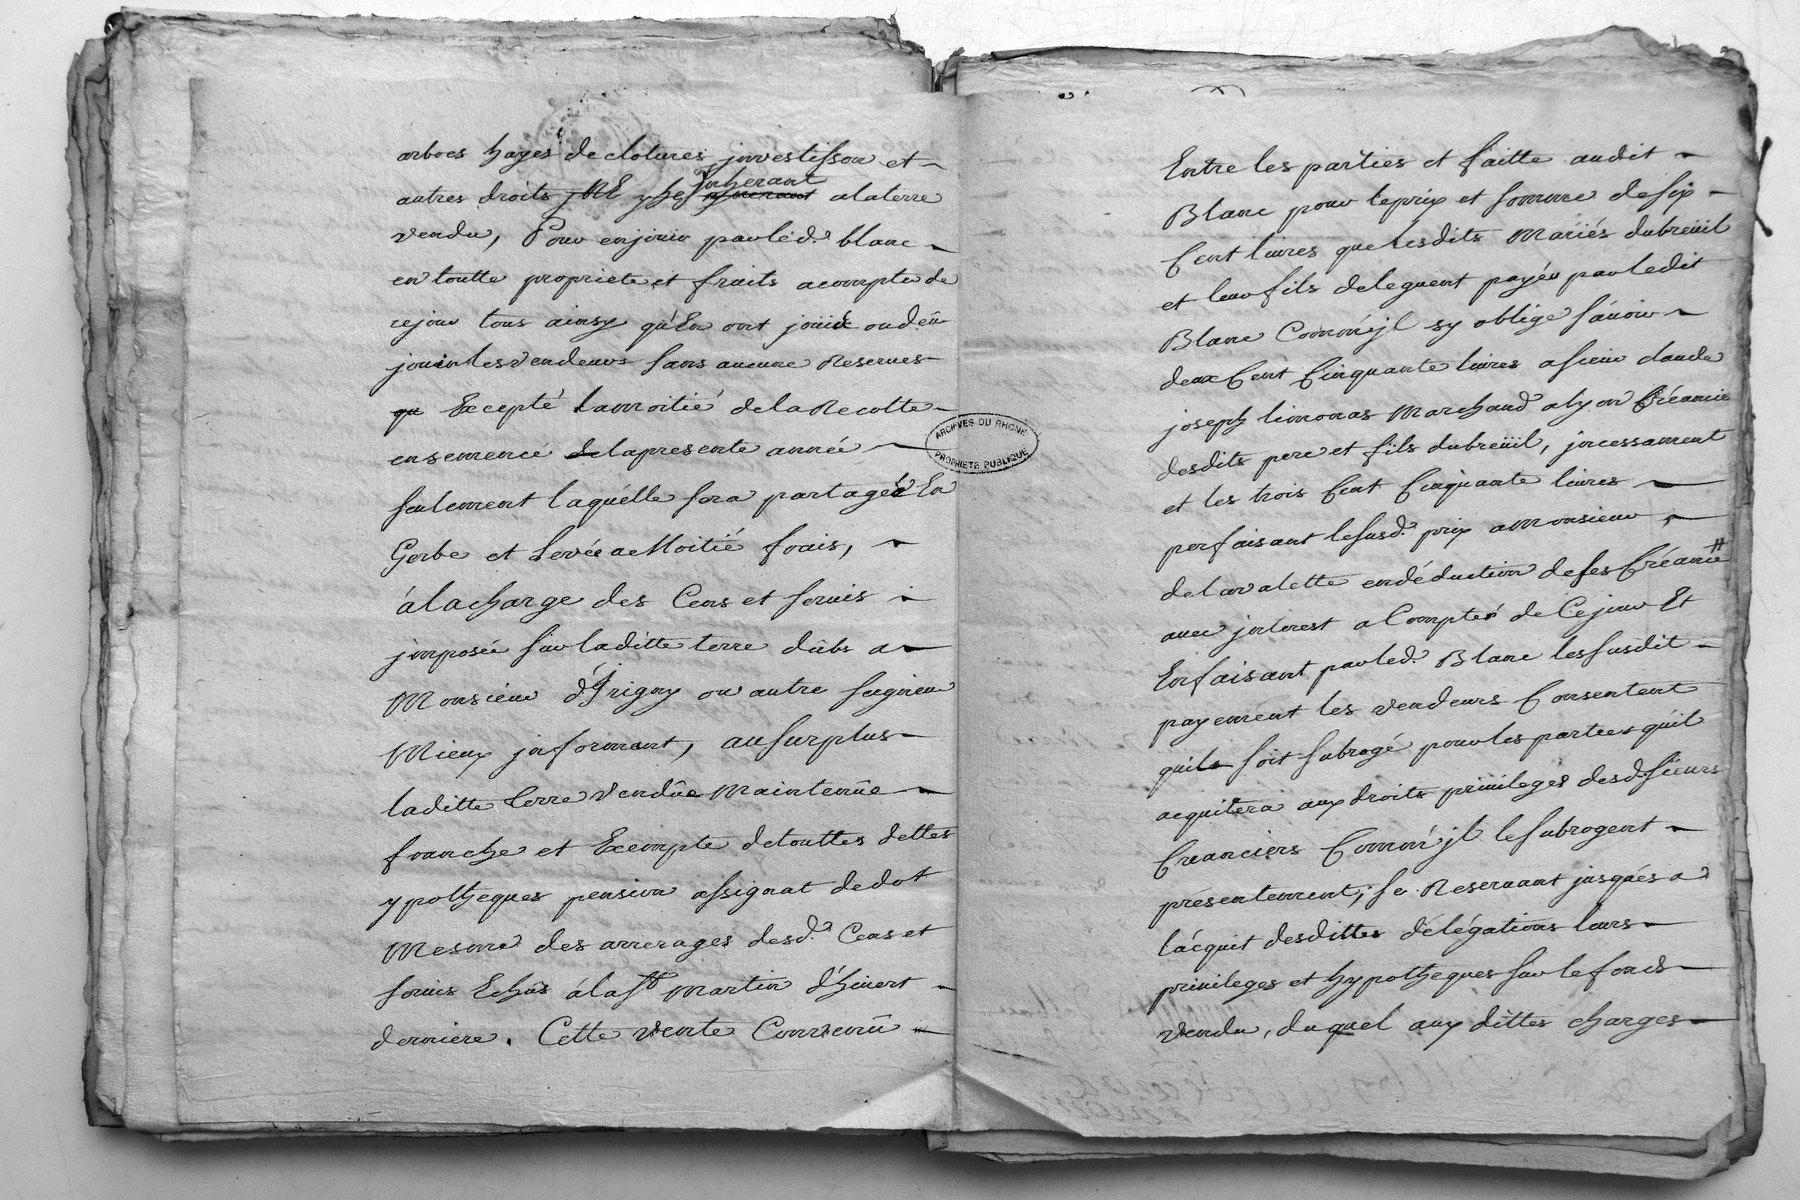 arbres hayes de clotures investisson et
autres droits inherant a la terre
vendu, Pour en jouir par led. blanc
en toutte propriete et fruits a compter de
ce jour tous ainsy qu'En ont jouis ou deû
jouir les vendeurs sans aucune Reserves
qu Excepté la moitié de la Recolte
ensemencé de la presente année
seulement laquelle sera partagée En
Gerbe et Levée a Moitié frais,
à la charge des Cens et servis
jmposée sur laditte terre dûbs a
Monsieur d'Jrigny ou autre seigneur
Mieux jnformant, au surplus
laditte terre vendûe Maintenûe
franche et Exempte de touttes dettes
ypotheques pension assignat de dot
Mesme des arrerages desd. Cens et
servis Echûs à la St Martin d'hivert
derniere. Cette vente Convenû
Entre les parties et faitte audit
Blanc pour le prix et somme de six
Cent livres que lesdits Mariés dubreüil
et leur fils deleguent payer par ledit
Blanc Comm'jl sy oblige sávoir
deux Cent Cinquante livres a sieur claude
joseph limonas Marchand a lyon Créancier
desdits pere et fils dubreüil, jncessament
et les trois Cent Cinquante livres
perfaisant le susd. prix a Monsieur
de la valette en déduction de ses Créances
avec jnterest a Compter de Ce jour Et
En faisant par led. Blanc les susdit
payement les vendeurs Consentent
quils soit subrogé pour les parties qu'il
acquitera aux droits privileges desd. sieurs
Creanciers Comm'jl le subrogent
présentement, se Reservant jusqués a
l'acquit desdittes délégations leurs
privileges et hypotheques sur le fonds
vendu, duquel aux dittes charges
ARCHIVES DU RHONE
PROPRIETE PUBLIQUE